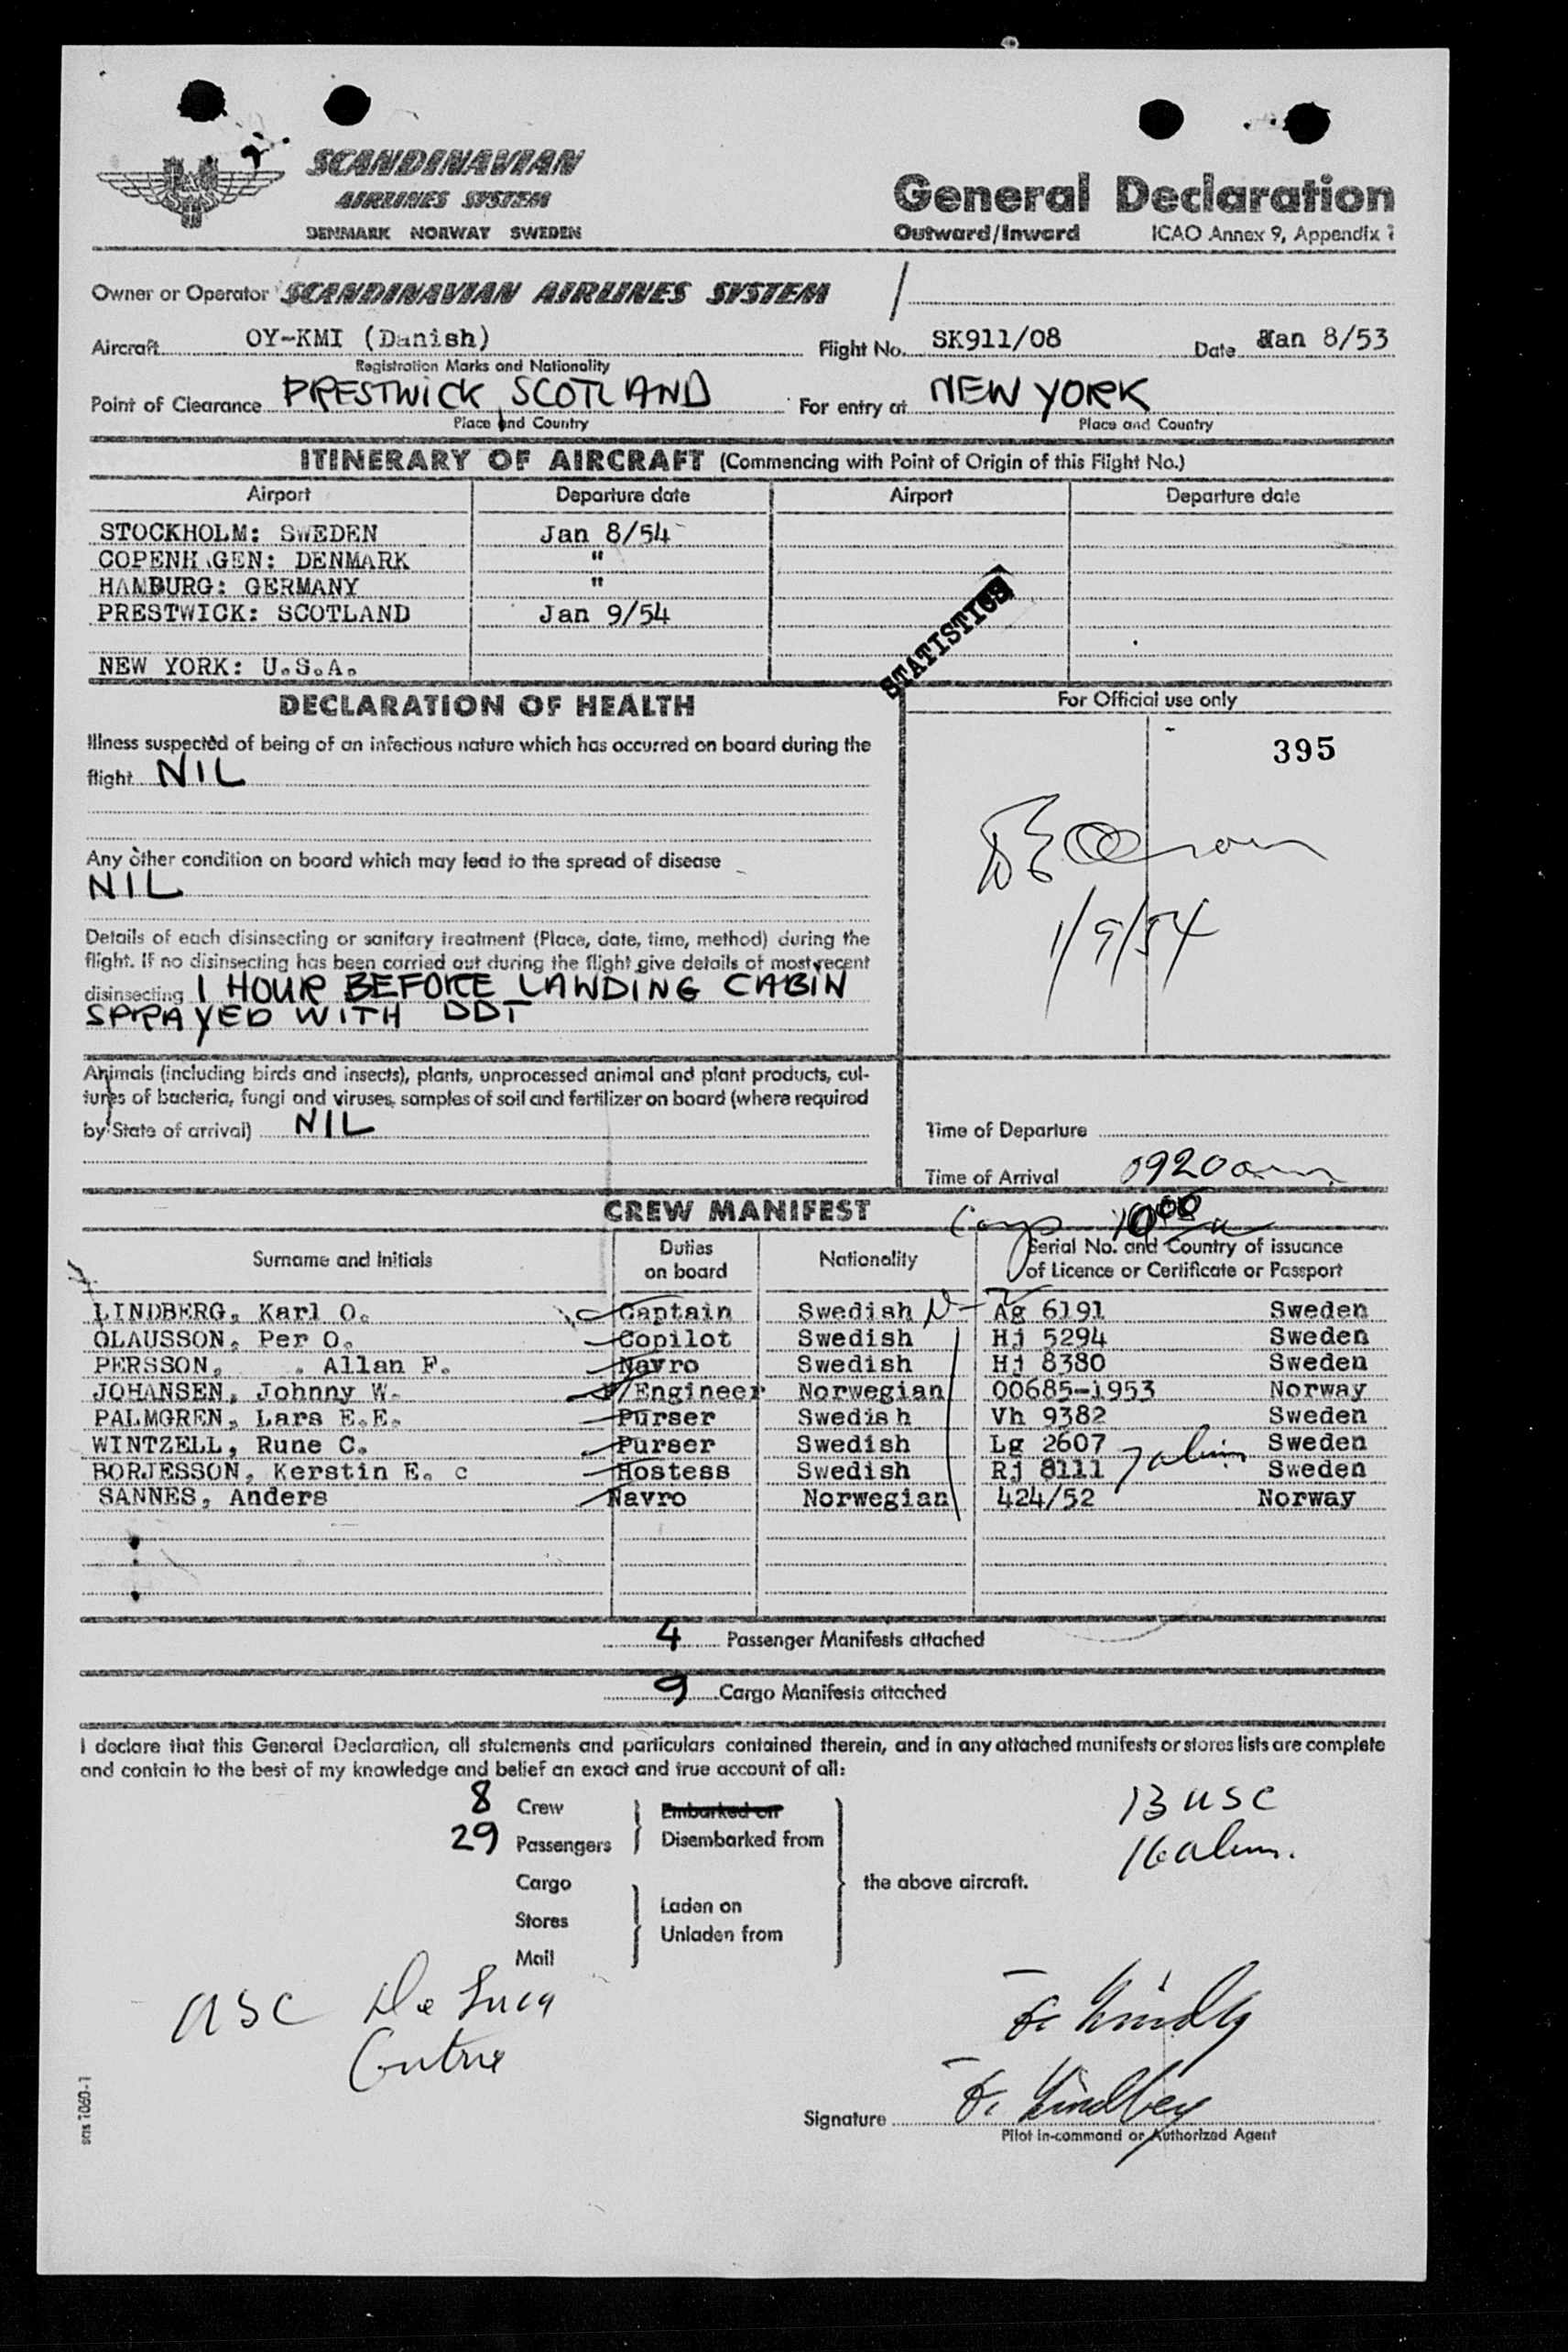 SCANDINAVIAN
AIRLINES SYSTEM
DENMARK NORWAY SWEDEN
General Declaration
Outward/Inward ICAO Annex 9, Appendix 1
Owner or Operator SCANDINAVIAN AIRLINES SYSTEM
Aircraft OY-KMI (Danish) Flight No. SK911/08 Date Jan 8/53
Registration Marks and Nationality
Point of Clearance PRESTWICK, SCOTLAND For entry at NEW YORK
Place and Country Place and Country
ITINERARY OF AIRCRAFT (Commencing with Point of Origin of this Flight No.)
Airport Departure date Airport Departure date
STOCKHOLM: SWEDEN Jan 8/54
COPENHAGEN: DENMARK "
HAMBURG: GERMANY "
PRESTWICK: SCOTLAND Jan 9/54
NEW YORK: U.S.A.
STATISTICS
DECLARATION OF HEALTH
For Official use only
395
Illness suspected of being of an infectious nature which has occurred on board during the
flight NIL
Any other condition on board which may lead to the spread of disease
NIL
1/9/54
Details of each disinsecting or sanitary treatment (Place, date, time, method) during the
flight. If no disinsecting has been carried out during the flight give details of most recent
disinsecting 1 HOUR BEFORE LANDING CABIN
SPRAYED WITH DDT
Animals (including birds and insects), plants, unprocessed animal and plant products, cul-
tures of bacteria, fungi and viruses, samples of soil and fertilizer on board (where required
by State of arrival) NIL
Time of Departure
Time of Arrival 0920am
CREW MANIFEST
Surname and Initials Duties on board Nationality Serial No. and Country of issuance of Licence or Certificate or Passport
LINDBERG, Karl O. Captain Swedish Ag 6191 Sweden
OLAUSSON, Per O. Copilot Swedish Hj 5294 Sweden
PERSSON, . Allan F. Navro Swedish Hj 8380 Sweden
JOHANSEN, Johnny W. /Engineer Norwegian 00685-1953 Norway
PALMGREN, Lars E.E. Purser Swedish Vh 9382 Sweden
WINTZELL, Rune C. Purser Swedish Lg 2607 Sweden
BORJESSON, Kerstin E. c Hostess Swedish Rj 8111 Sweden
SANNES, Anders Navro Norwegian 424/52 Norway
4 Passenger Manifests attached
9 Cargo Manifests attached
I declare that this General Declaration, all statements and particulars contained therein, and in any attached manifests or stores lists are complete
and contain to the best of my knowledge and belief an exact and true account of all:
8 Crew Embarked on
29 Passengers Disembarked from
Cargo the above aircraft.
Stores Laden on
Mail Unladen from
13 USC
16 alien.
USC De Luca
Signature
Pilot in-command or Authorized Agent
sas 1060-1